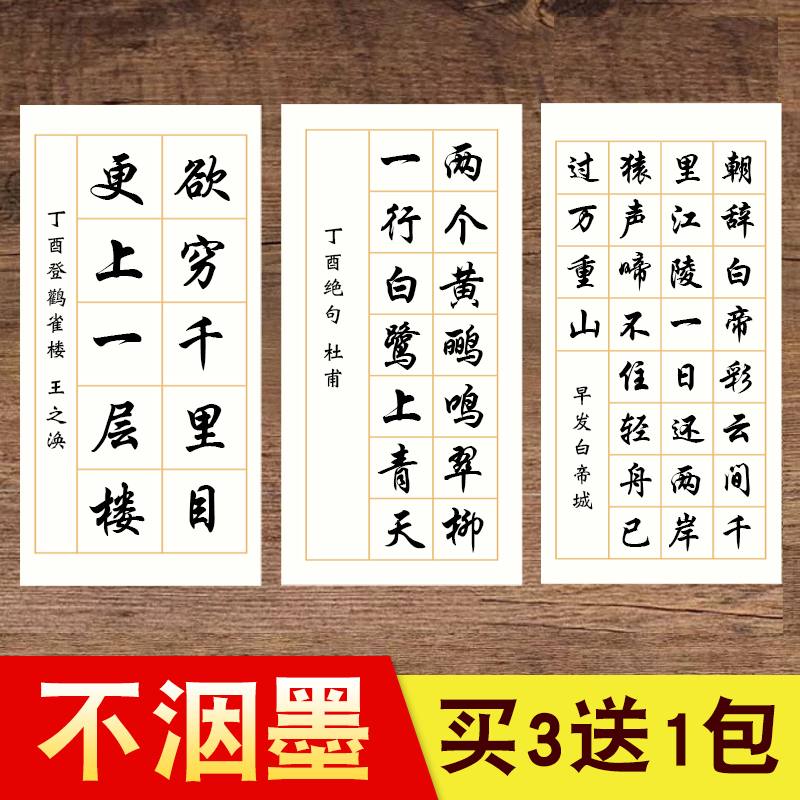 欲穷千里目
更上一层楼
丁酉登鹳雀楼 王之涣
两个黄鹂鸣翠柳
一行白鹭上青天
丁酉绝句 杜甫
朝辞白帝彩云间千
里江陵一日还两岸
猿声啼不住轻舟已
过万重山
早发白帝城
不洇墨
买3送1包